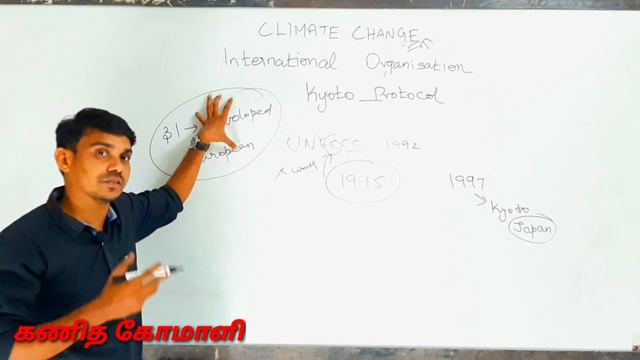 CLIMATE CHANGE
International Organisation
Kyoto Protocol
31 →
European
UNFCCC 1992
1995
1997
Kyoto
Japan
கணித கோமாளி